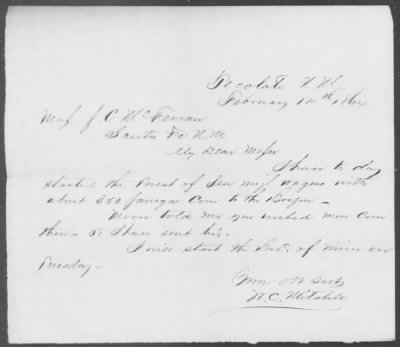 Tecolote N.M.
February 14th 1862
Maj J. C. McFerran
Santa Fe N.M.
My Dear Major
I have to day
started the wagons with
about 550 fanegas Corn to the
Moore told me you wished more Corn
there - So I have sent his.
I will start the Bal. of mine on
Tuesday -
Your Obt Servt
W. C. Mitchell